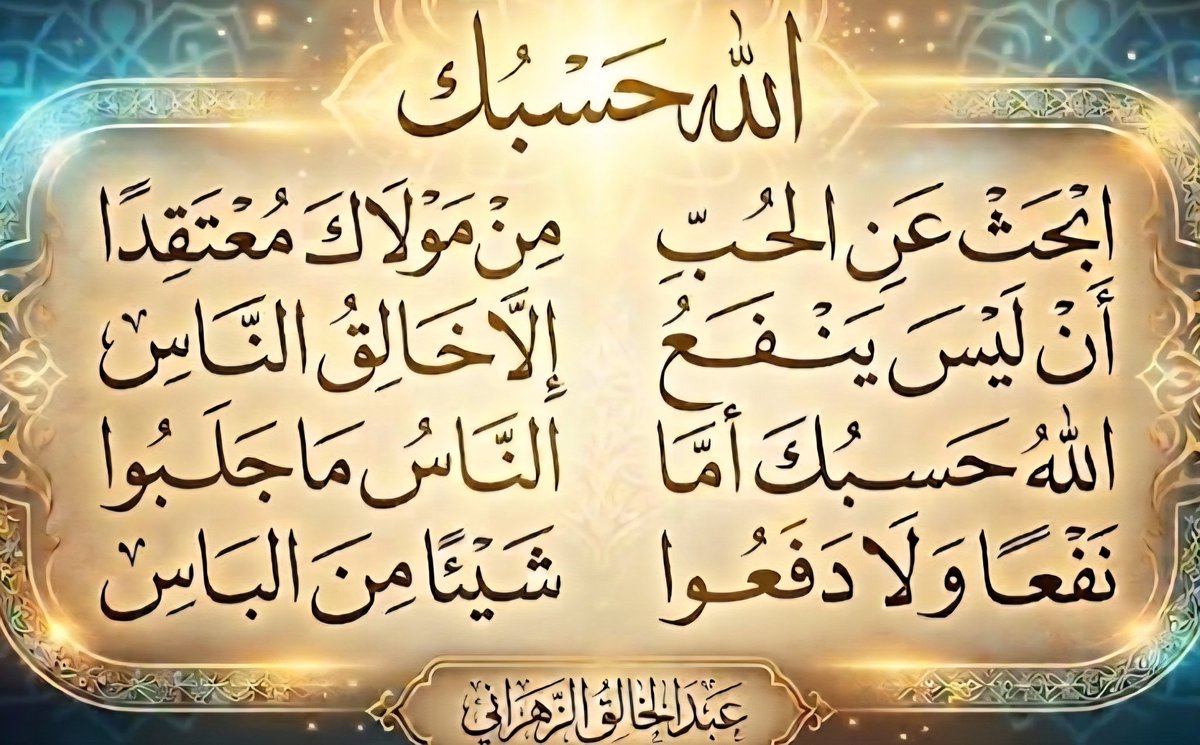 الله حَسْبُك
ابْحَثْ عَنِ الحُبِّ مِنْ مَوْلَاكَ مُعْتَقِدًا
أَنْ لَيْسَ يَنْفَعُ إِلَّا خَالِقُ النَّاسِ
اللهُ حَسبُكَ أمَّا النَّاسُ مَا جَلَبُوا
نَفْعًا وَلَا دَفَعُوا شَيْئًا مِنَ البَاسِ
عَبْدَالخَالِقُ الزَّهْرَانِي